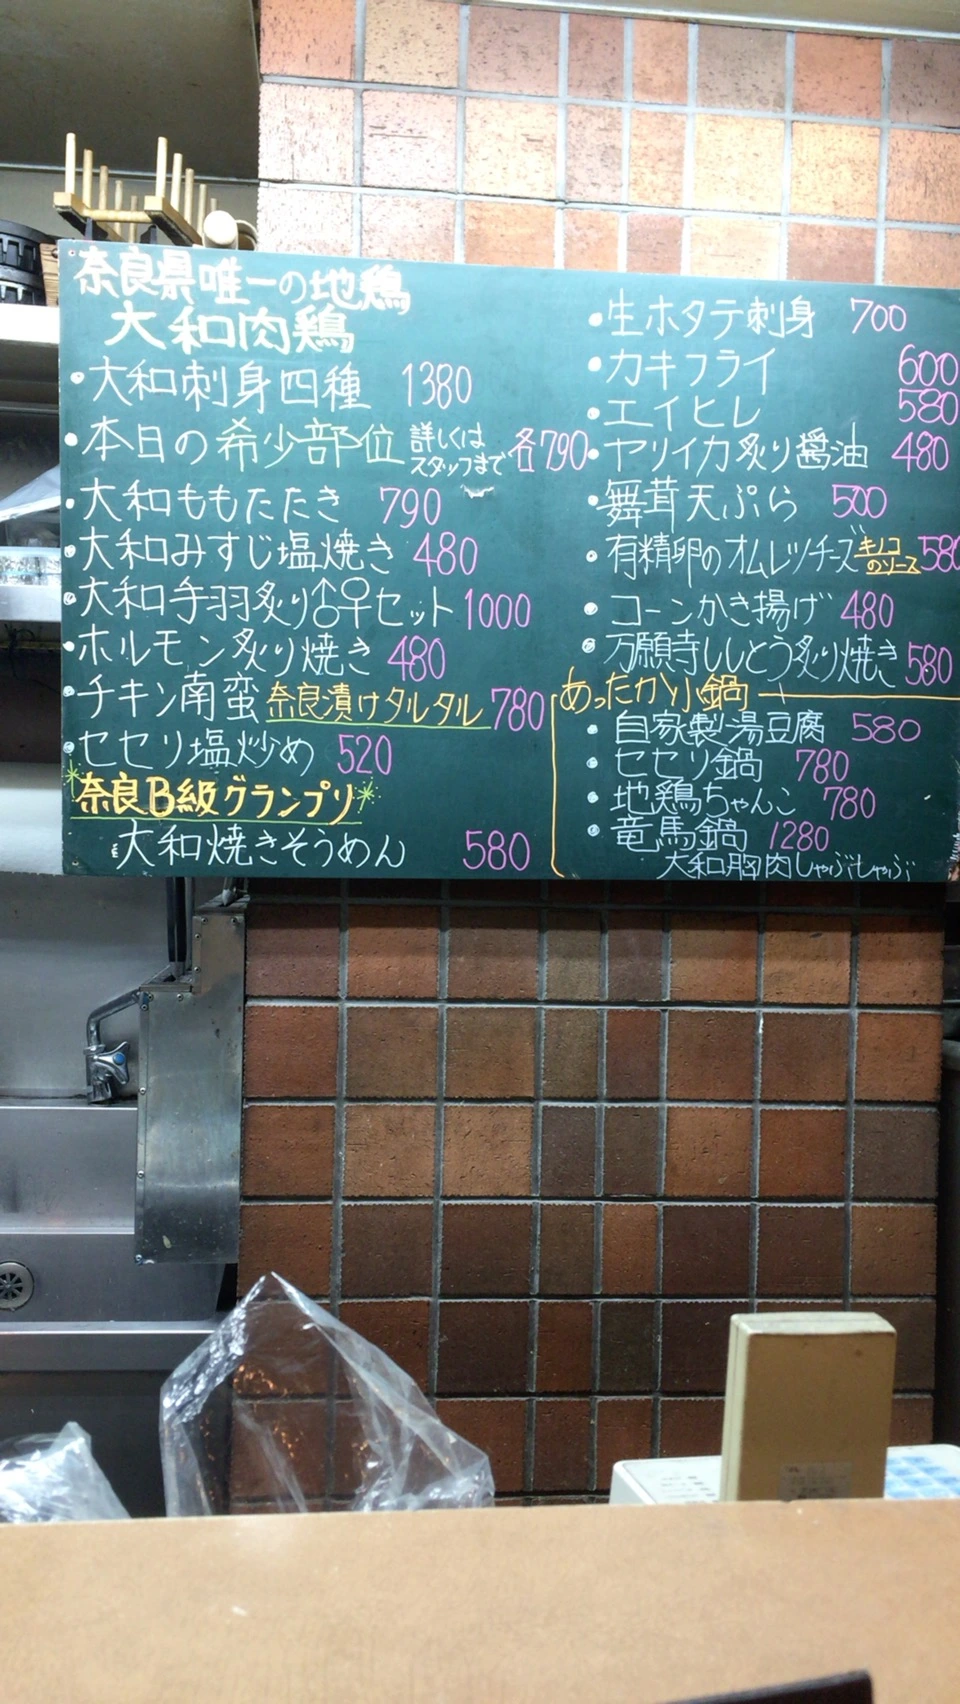 奈良県唯一の地鶏
大和肉鶏
・大和刺身四種 1380
・本日の希少部位 詳しくはスタッフまで 各790
・大和ももたたき 790
・大和みすじ塩焼き 480
・大和手羽炙り♂♀セット 1000
・ホルモン炙り焼き 480
・チキン南蛮 奈良漬けタルタル 780
・セセリ塩炒め 520
奈良B級グランプリ
大和焼きそうめん 580
・生ホタテ刺身 700
・カキフライ 600
・エイヒレ 580
・ヤリイカ炙り醤油 480
・舞茸天ぷら 500
・有精卵のオムレツチーズ キノコのソース 580
・コーンかき揚げ 480
・万願寺ししとう炙り焼き 580
あったか小鍋
・自家製湯豆腐 580
・セセリ鍋 780
・地鶏ちゃんこ 780
・竜馬鍋 1280
大和胸肉しゃぶしゃぶ